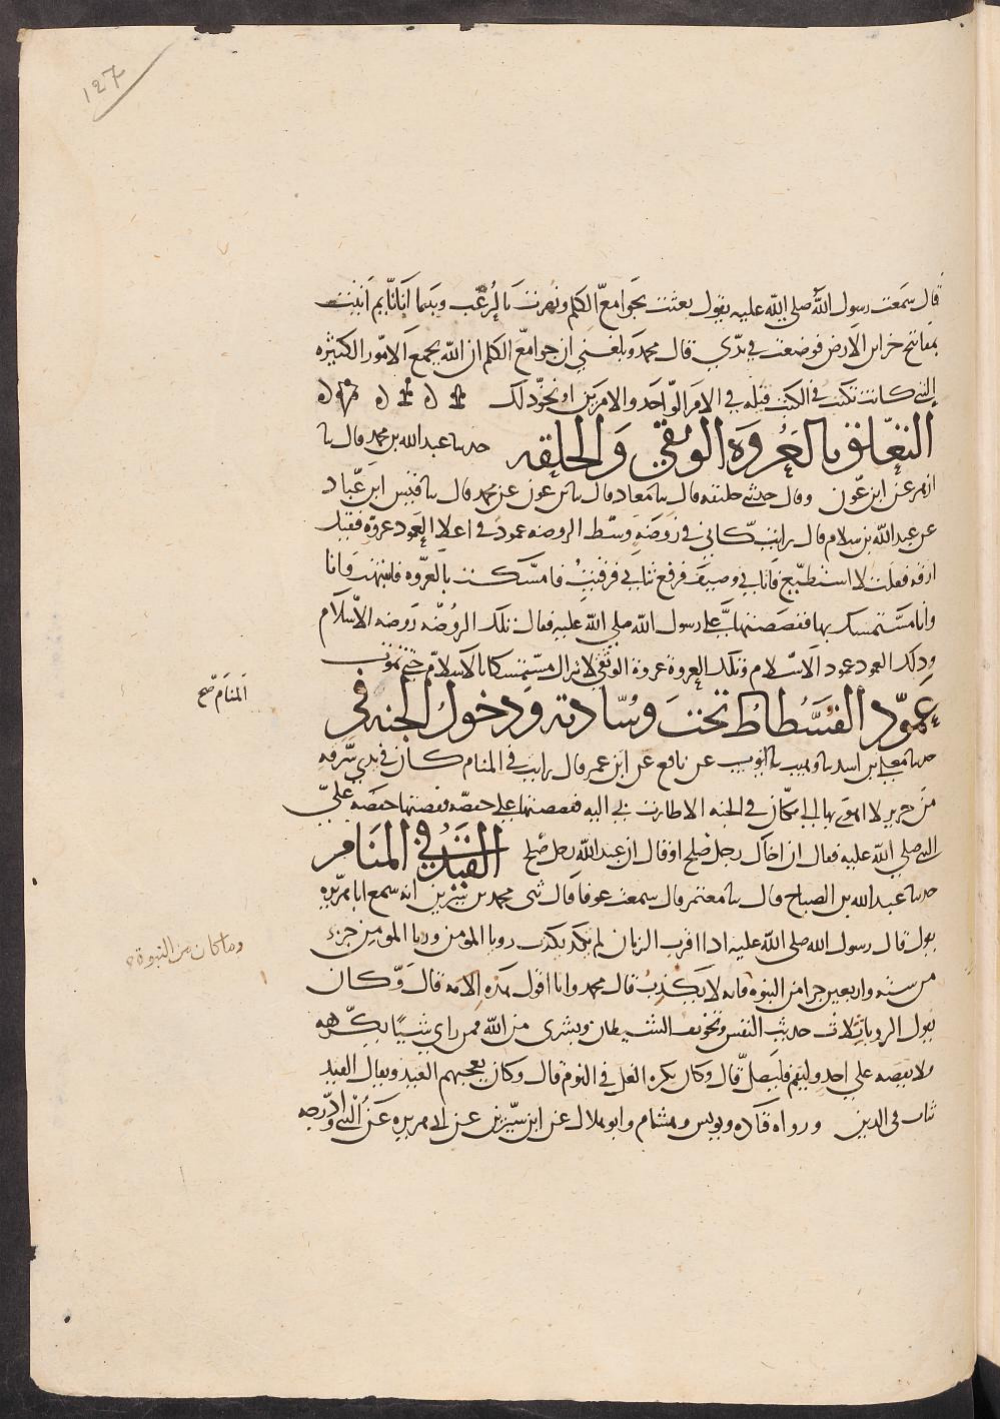 127
قال سمعت رسول الله صلى الله عليه يقول بعثت بجوامع الكلم ونصرت بالرعب وبينما انا نايم اتيت
بمفاتيح خزاين الارض فوضعت في يدي قال محمد وبلغني ان جوامع الكلم ان الله يجمع الامور الكثيره
التي كانت تكتب في الكتب قبله في الامر الواحد والامرين او نحو ذلك
التعليق بالعروة الوثقى والحلقه حدثنا عبد الله بن محمد قال نا
ازهر عن ابن عون وقال حدثني خليفه قال نا معاذ قال نا بن عون عن محمد قال نا قيس ابن عباد
عن عبد الله بن سلام قال رايت كاني في روضه وسط الروضه عمود في اعلا العمود عروة فقيل
ارقه فقلت لا استطيع فاتاني وصيف فرفع ثيابي فرقيت فامسكت بالعروه فانتبهت وانا
وانا مستمسك بها فقصصتها على رسول الله صلى الله عليه فقال تلك الروضه روضه الاسلام
وذلك العمود عمود الاسلام وتلك العروة عروة الوثقى لا تزال مستمسكا بالاسلام حتى تموت
عمود الفسطاط تحت وسادته ودخول الجنه في
المنام صح
حدثنا معلى بن اسد نا وهيب نا ايوب عن نافع عن ابن عمر قال رايت في المنام كان في يدي سرقه
من حرير لا اهوي بها الى مكان في الجنه الا طارت بي اليه فقصصتها على حفصه فقصتها حفصه على
النبي صلى الله عليه فقال ان اخاك رجل صلح او قال ان عبد الله رجل صلح القيد في المنام
حدثنا عبد الله بن الصباح قال نا معتمر قال سمعت عوفا قال ثنى محمد بن سيرين انه سمع ابا هريره
يقول قال رسول الله صلى الله عليه اذا اقترب الزمان لم يكد يكذب رويا المومن ورويا المومن جزء
وما كان من النبوة
من سته واربعين جزا من النبوه فانه لا يكذب قال محمد وانا اقول هذه الامه قال وكان
يقول الرويا ثلاث حديث النفس وتخويف الشيطان وبشرى من الله فمن راى شييا يكرهه
فلا يقصه على احد وليقم فليصل قال وكان يكره الغل في النوم قال وكان يعجبهم القيد ويقال القيد
ثبات في الدين ورواه قتاده ويونس وهشام وابو هلال عن ابن سيرين عن ابي هريره عن النبي وادرجه